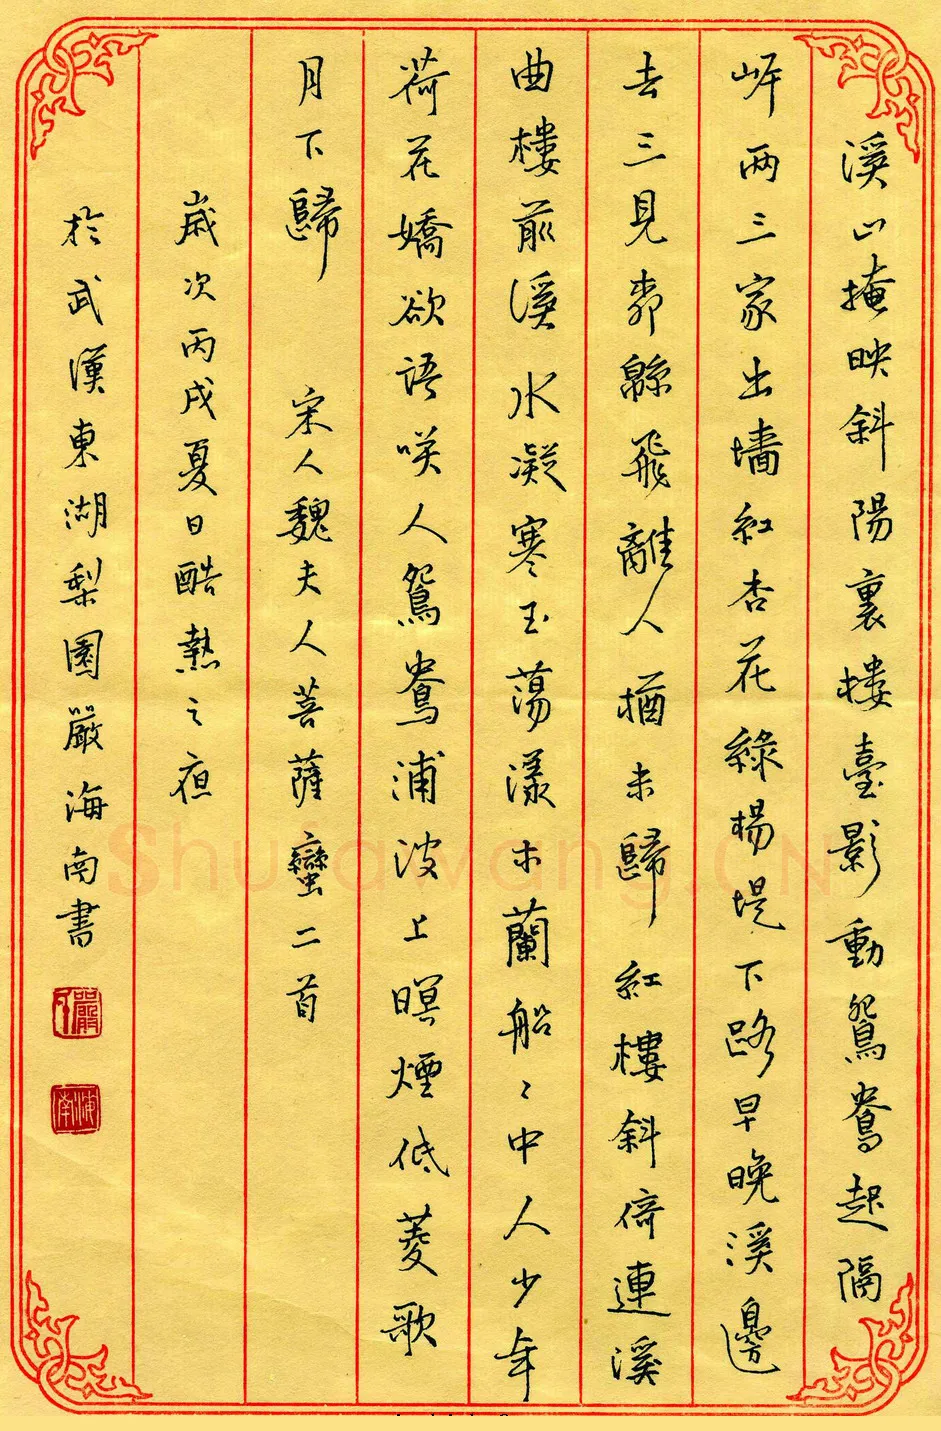 溪山掩映斜陽裏樓臺影動鴛鴦起隔
岸两三家出墻紅杏花綠楊堤下路早晚溪邊
去三見柳緜飛離人猶未歸紅樓斜倚連溪
曲樓前溪水凝寒玉蕩漾木蘭船〻中人少年
荷花嬌欲語笑人鴛鴦浦波上暝煙低菱歌
月下歸 宋人魏夫人菩薩蠻二首
歲次丙戌夏日酷熱之夜
於武漢東湖梨園嚴海南書
嚴
海南
Shufawang.CN